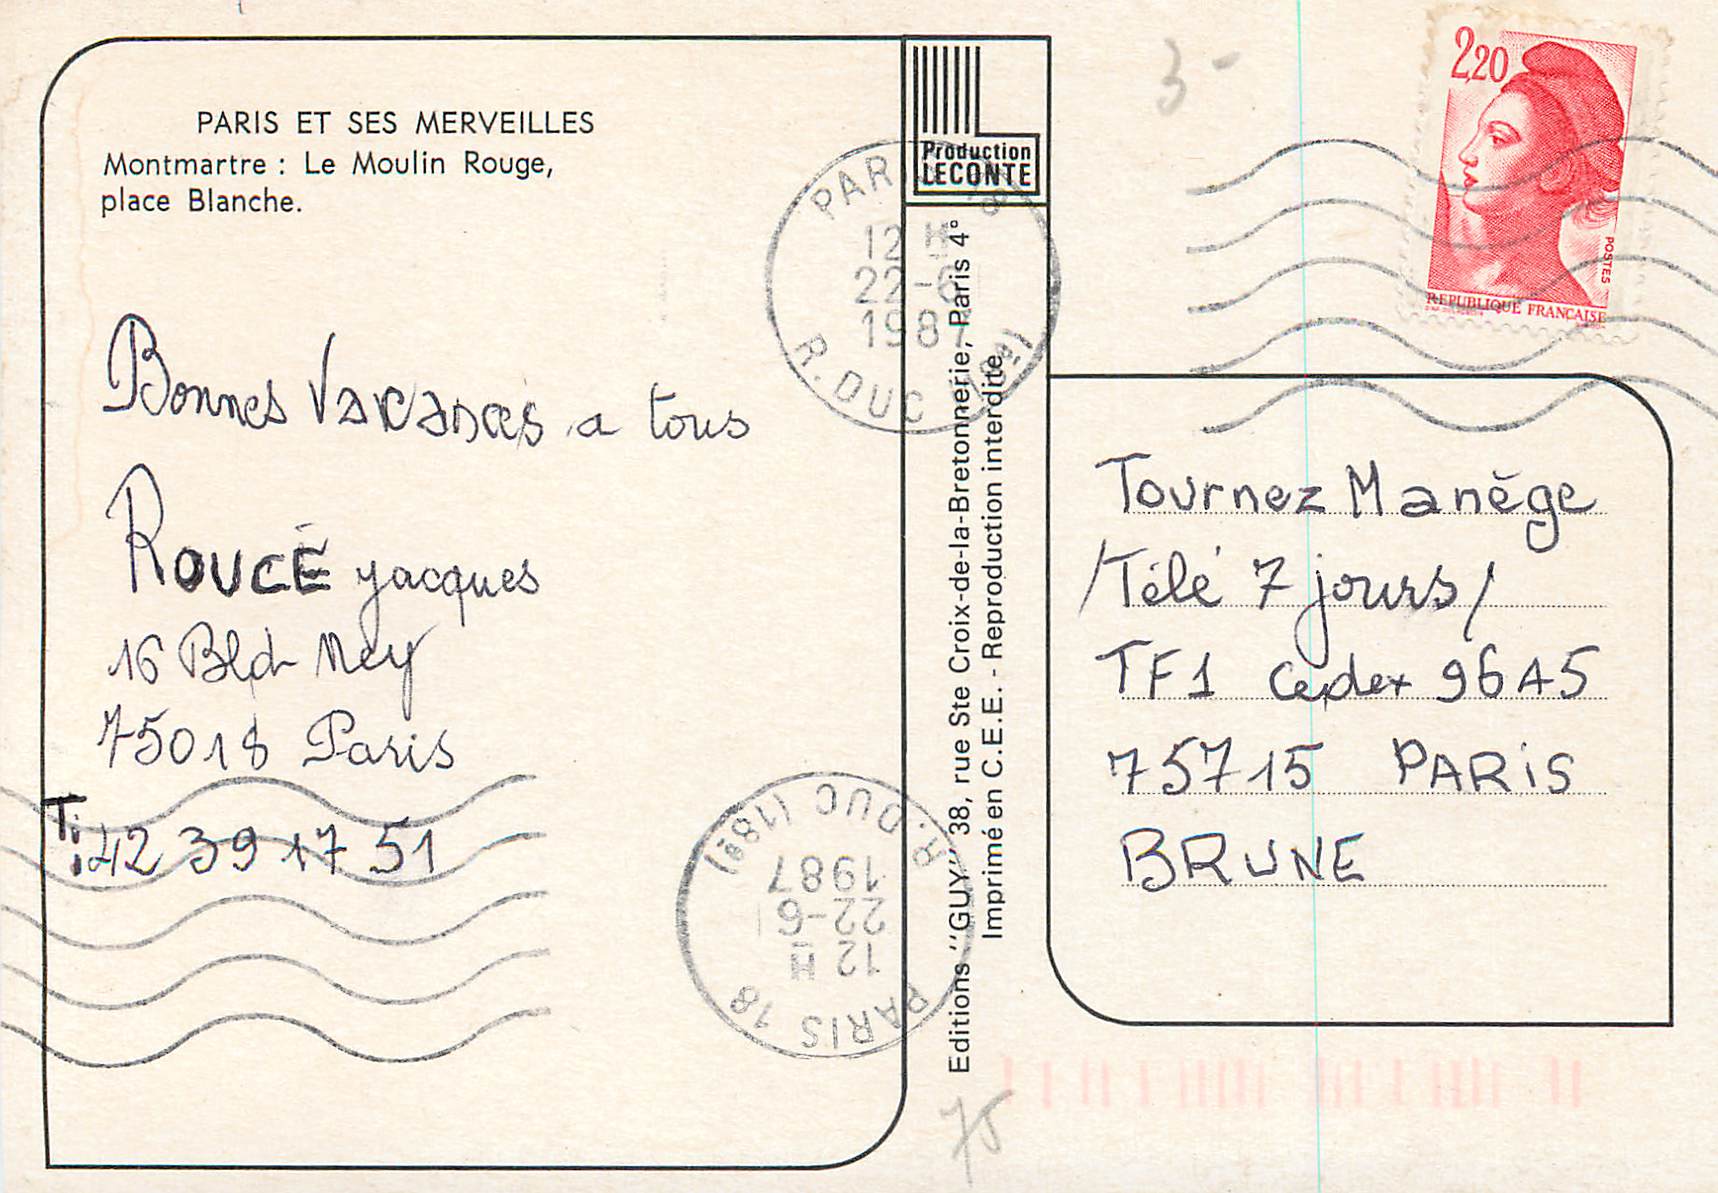 PARIS ET SES MERVEILLES
Montmartre : Le Moulin Rouge,
place Blanche.
Bonnes Vacances a tous
ROUCÉ jacques
16 Bld Ney
75018 Paris
T: 42 39 17 51
Production
LECONTE
PARIS 18
12 H
22-6
1987
R. DUC (18è)
PARIS 18
12 H
22-6
1987
R. DUC (18è)
Editions "GUY" 38, rue Ste Croix-de-la-Bretonnerie, Paris 4°
Imprimé en C.E.E. - Reproduction interdite
3-
2,20
POSTES
REPUBLIQUE FRANÇAISE
Tournez Manège
/Télé 7 jours/
TF1 Cedex 96A5
75715 PARiS
BRUNE
75